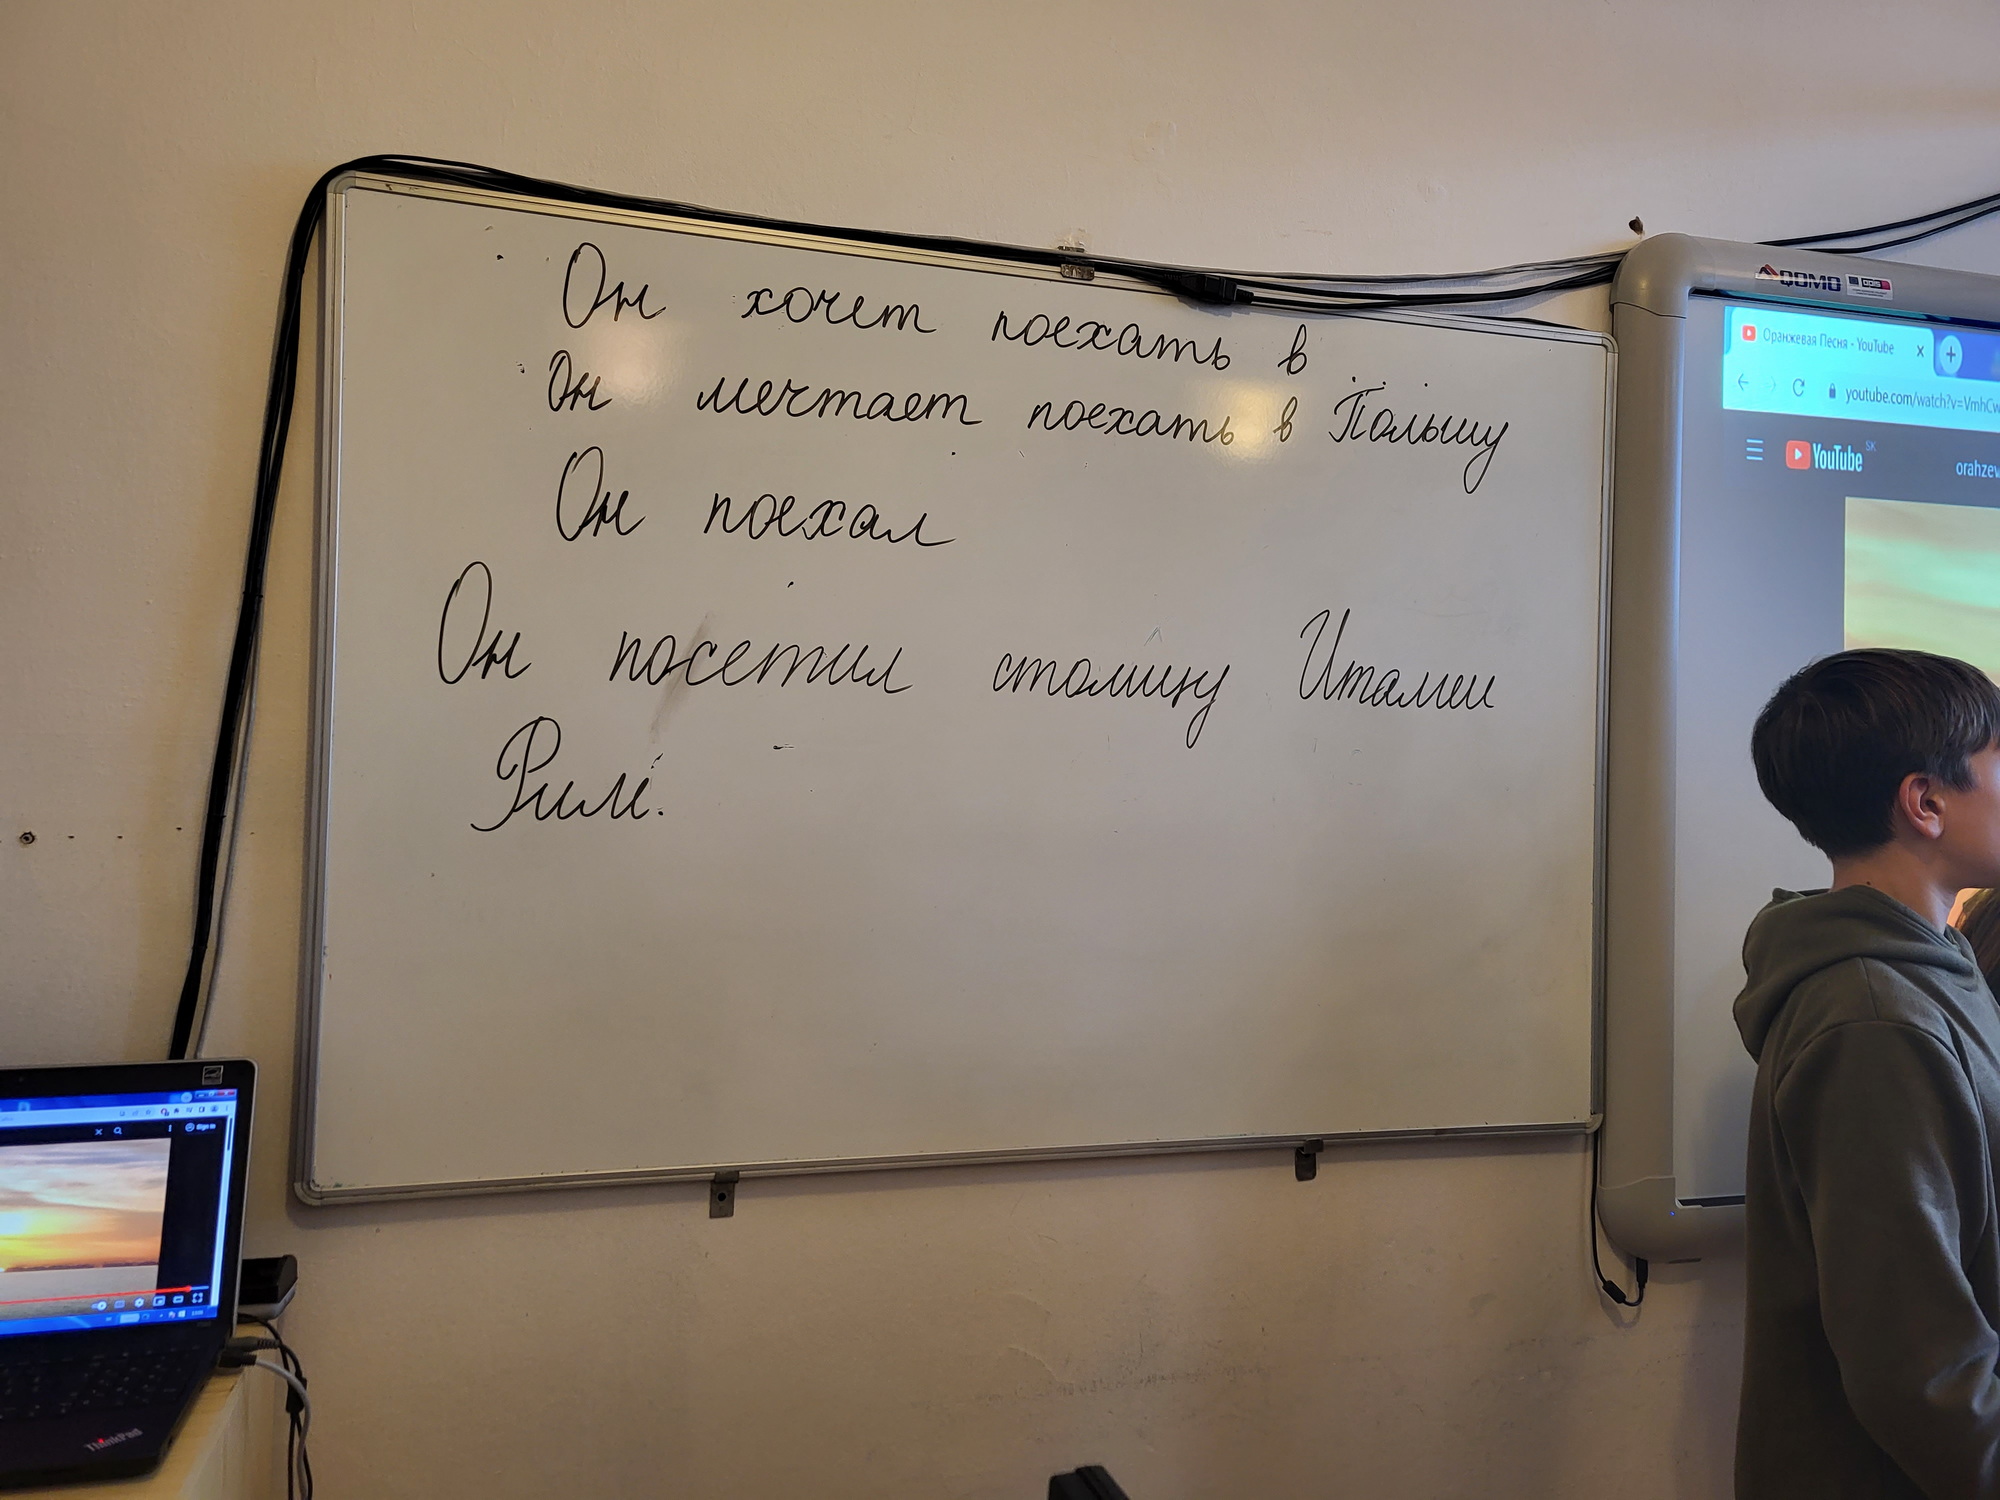 Он хочет поехать в
Он мечтает поехать в Польшу
Он поехал
Он посетил столицу Италии
Рим.
QOMO
Оранжевая Песня - YouTube
youtube.com/watch?v=VmhCw
YouTube SK
orahzev
Sign in
ThinkPad